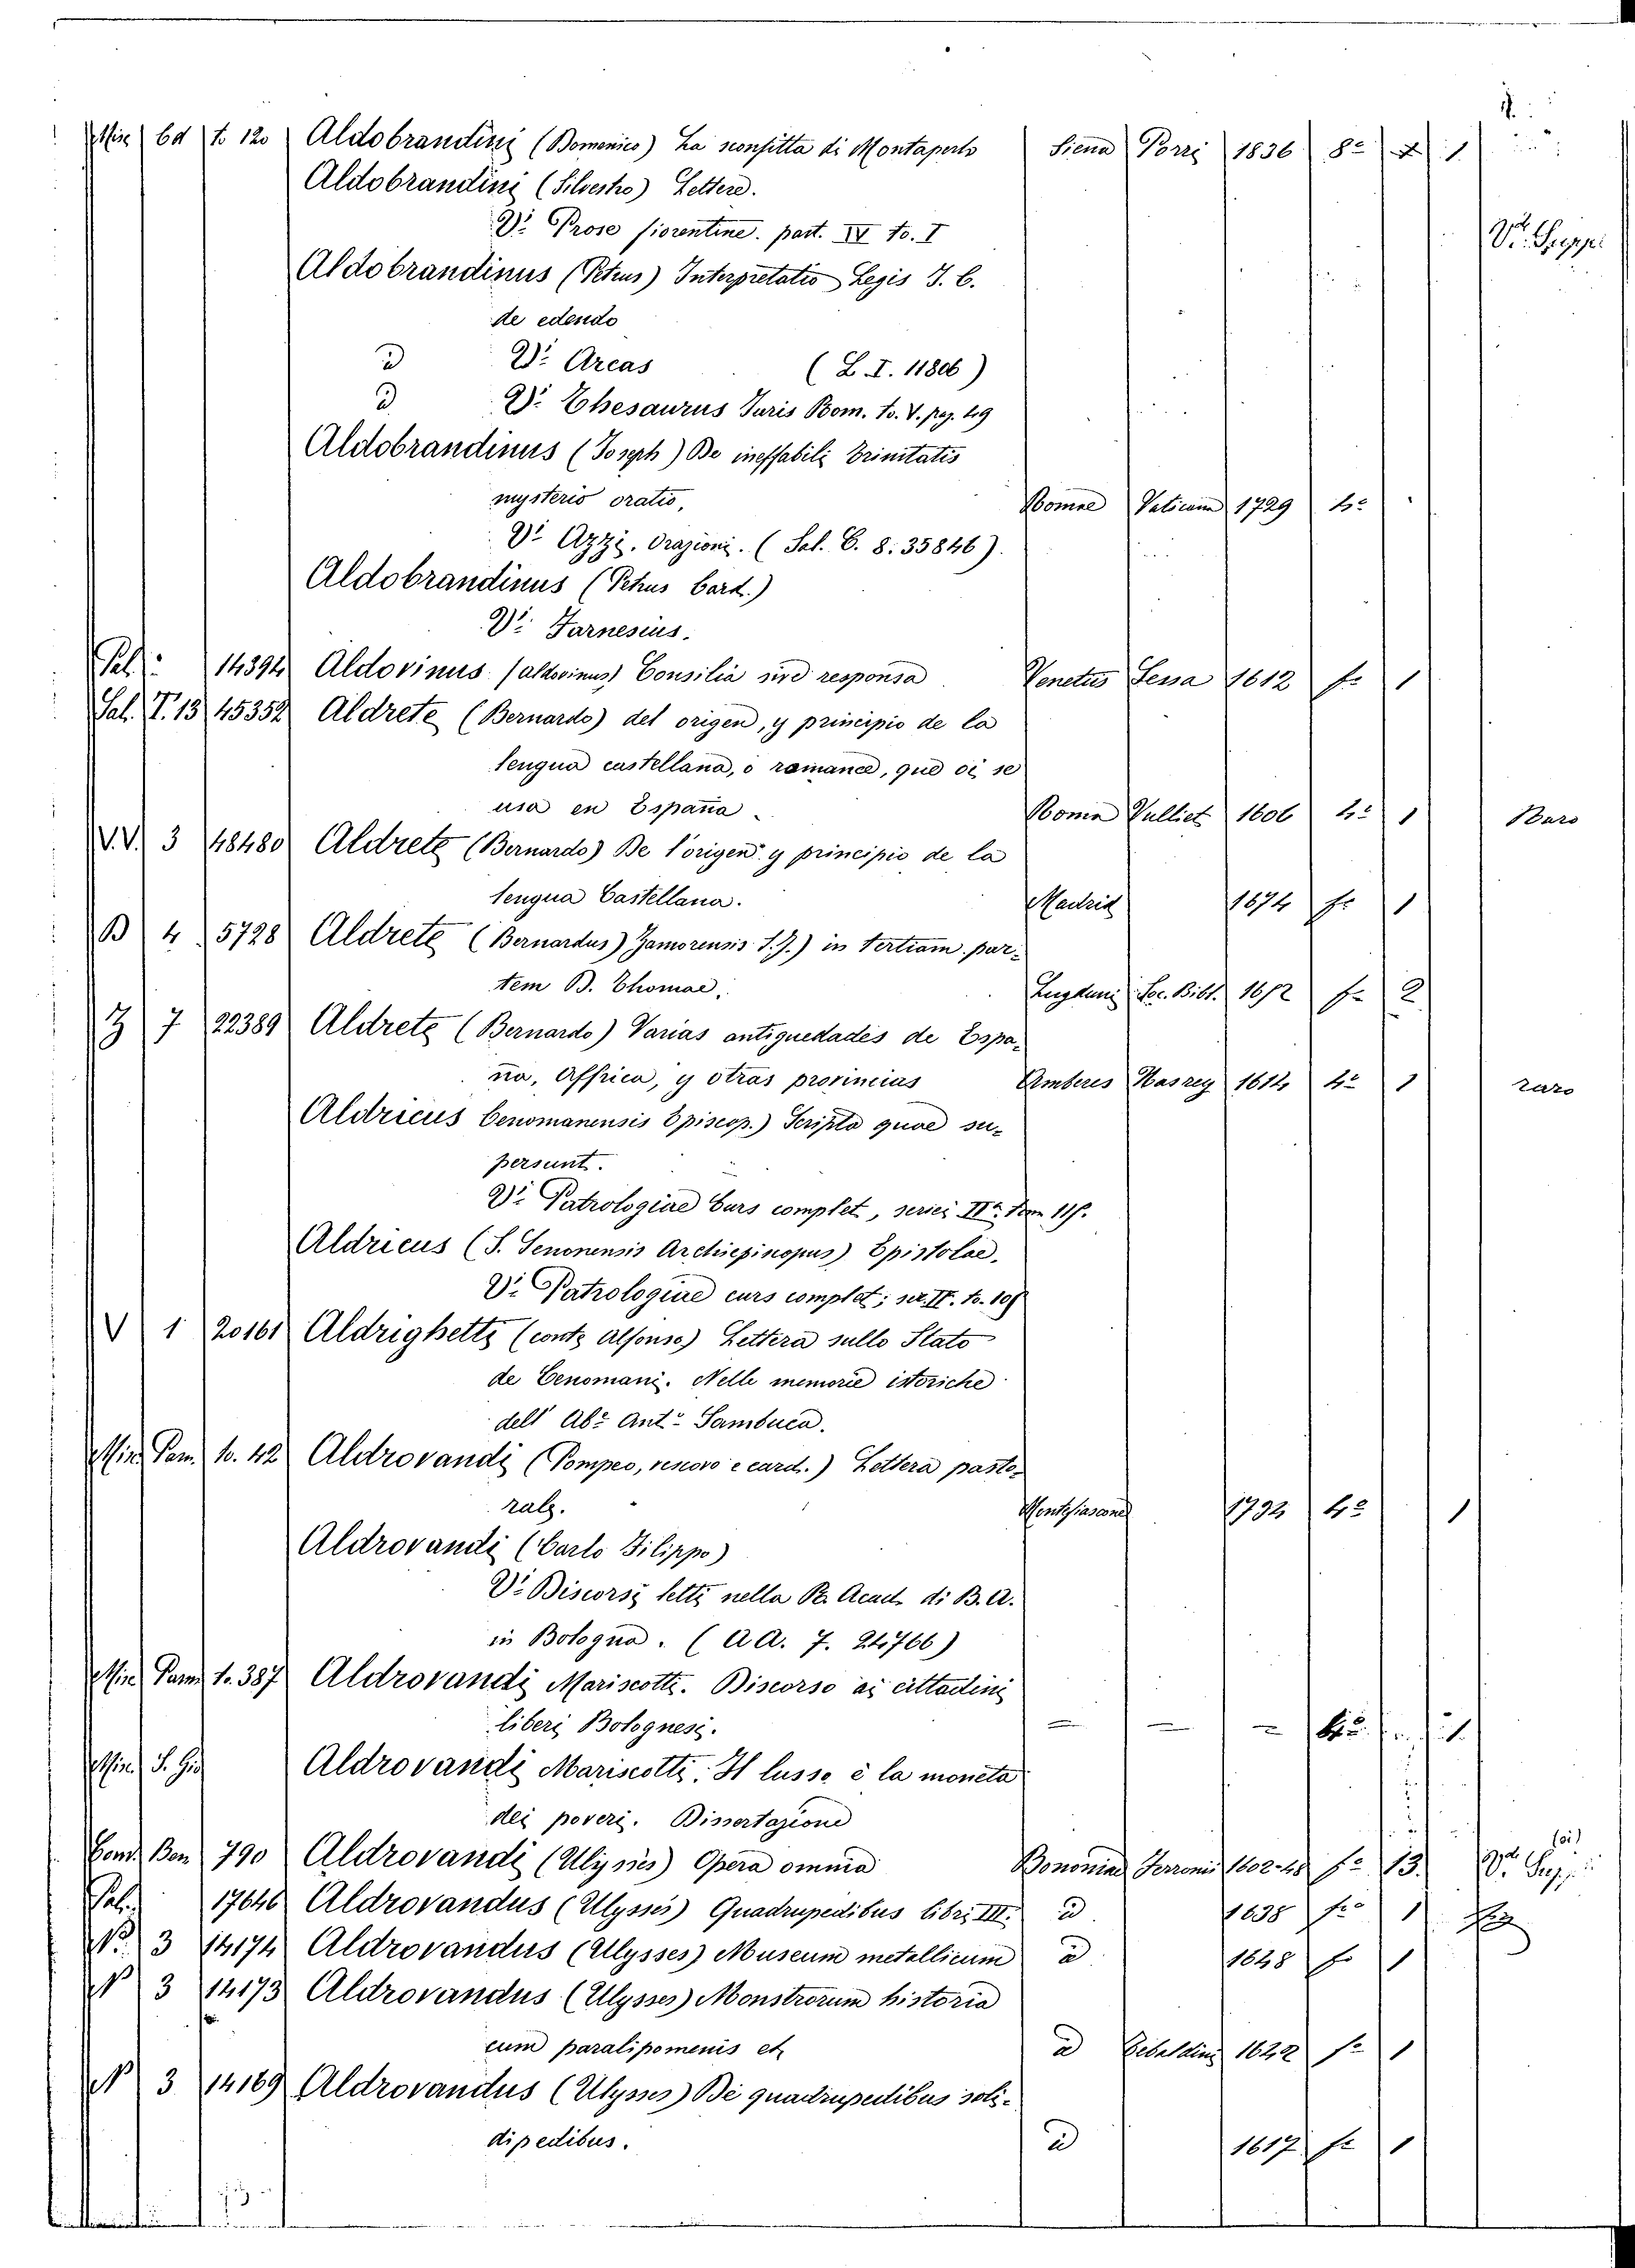 Misc 6d to 120 Aldobrandini (Domenico) La sconfitta di Montaperto Siena Porri 1836 8º 1
Aldobrandini (Silvestro) Lettere.
Vi Prose fiorentine. part. IV to. I Vi Supp.
Aldobrandinus (Petrus) Interpretatio Legis I. C.
de edendo
D Vi Arcas (L. I. 11806)
D Vi Thesaurus Juris Rom. to. V. pag. 49
Aldobrandinus (Joseph) De ineffabili Trinitatis
mysterio oratio, Romae Vaticana 1729 4º
Vi Azzi. Orazioni. (Sal. C. 8. 35846).
Aldobrandinus (Petrus Card.)
Vi Farnesius.
Sal. 14394 Aldovinus (Aldovinus) Consilia sive responsa Venetiis Sessa 1612 fo 1
Sal. T. 13 45352 Aldrete (Bernardo) del origen, y principio de la
lengua castellana, o romance, que oi se
usa en España Roma Vulliet 1606 4º 1 Raro
V.V. 3 48480 Aldrete (Bernardo) De l'origen y principio de la
lengua Castellana. Madrid 1674 fo 1
B 4 5728 Aldrete (Bernardus) Zamorensis S.J.) in tertiam par-
tem D. Thomae. Lugduni Soc. Bibl. 1652 fo 2
Z 7 22389 Aldrete (Bernardo) Varias antiguedades de Espa-
ña, Affrica, y otras provincias Amberes Hasrey 1614 4º 1 raro
Aldricus Cenomanensis Episcop.) Scripta quae su-
persunt.
Vi Patrologiae Curs complet, seriei IIª tom 115.
Aldricus (S. Senonensis Archiepiscopus) Epistolae.
Vi Patrologiae curs complet; ser. II. to. 105
V 1 20161 Aldrighetti (conte Alfonso) Lettera sullo Stato
de Cenomani. Nelle memorie istoriche
dell' Abe Antº Sambuca.
Misc Pam. to. 42 Aldrovandi (Pompeo, vescovo e card.) Lettera pasto-
rale. Montefiascone 1734 4º 1
Aldrovandi (Carlo Filippo)
Vi Discorsi letti nella R. Acad. di B. A.
in Bologna. (A A. 7. 24766)
Misc Pam to. 387 Aldrovandi Mariscotti. Discorso ai cittadini
liberi Bolognesi. — — — 4º 1
Misc. Aldrovandi Mariscotti. Il lusso è la moneta
dei poveri. Dissertazione
Cons. Bon 790 Aldrovandi (Ulysses) Opera omnia Bononiae Ferroni 1602-48 fo 13. Vi Sup.
Sal. 17646 Aldrovandus (Ulysses) Quadrupedibus libri III. D 1638 fo 1
N. 3 14174 Aldrovandus (Ulysses) Museum metallicum D 1648 fo 1
N 3 14173 Aldrovandus (Ulysses) Monstrorum historia
cum paralipomenis etc D Tebaldini 1642 fo 1
N 3 14169 Aldrovandus (Ulysses) De quadrupedibus soli-
dipedibus. D 1617 fo 1